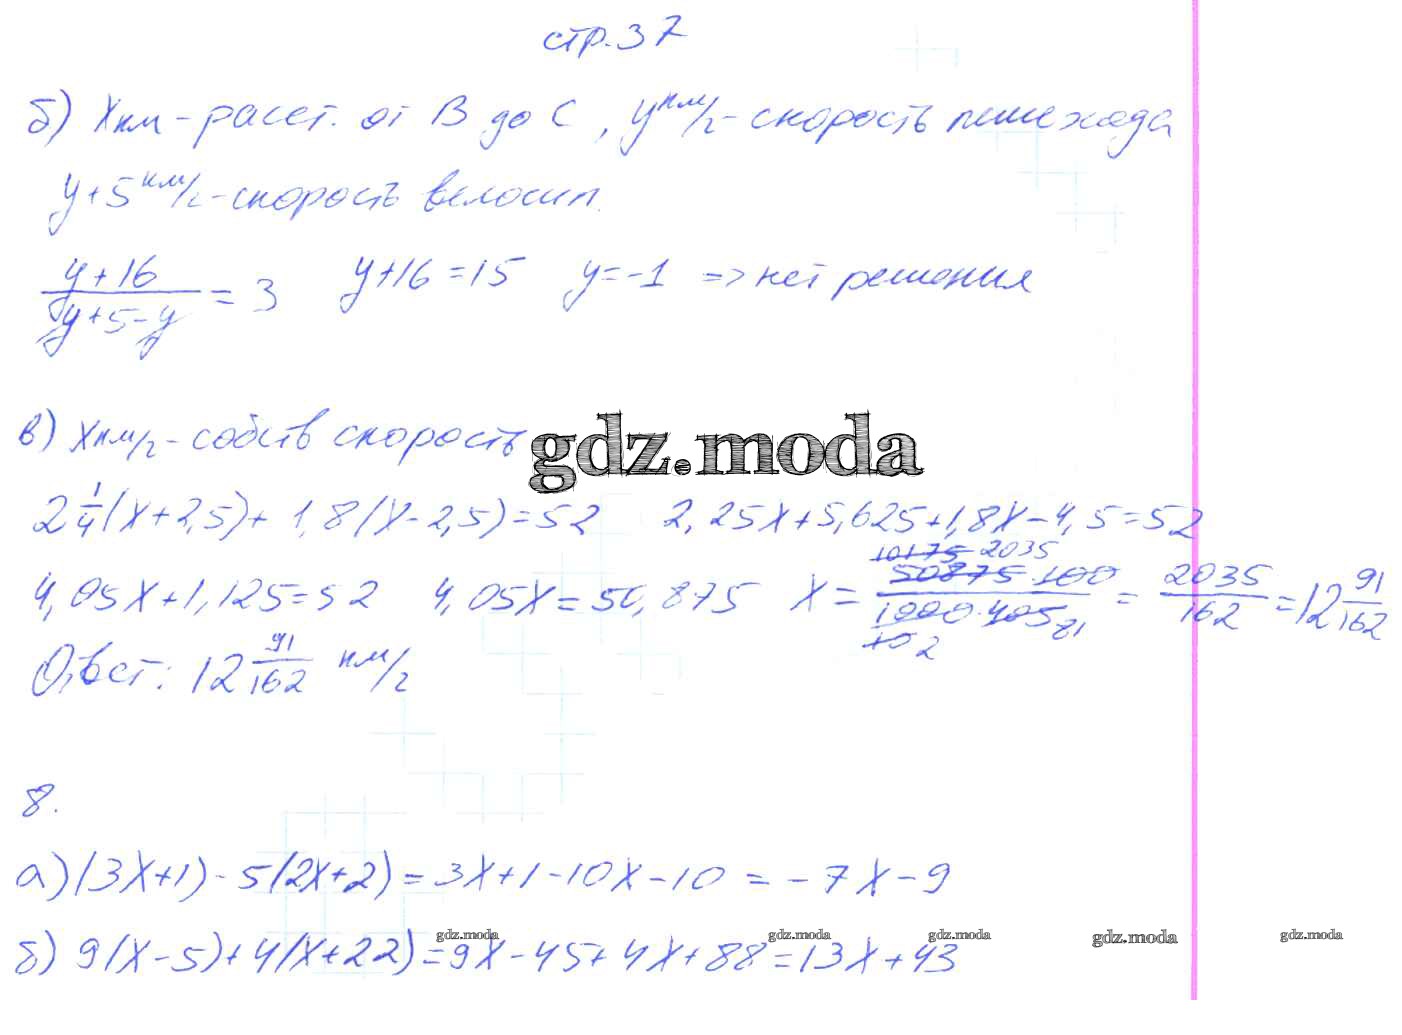 стр. 37
б) Xкм - расст. от В до С, y км/г - скорость пешехода
y + 5 км/г - скорость велосип.
(y + 16)/(y + 5 - y) = 3   y + 16 = 15   y = -1   => нет решения
в) Xкм/г - собств скорость
gdz.moda
2 1/4 (X + 2,5) + 1,8 (X - 2,5) = 52   2,25X + 5,625 + 1,8X - 4,5 = 52
4,05X + 1,125 = 52   4,05X = 50,875   X = (50875 · 100)/(1000 · 405) = 2035/162 = 12 91/162
10175 2035
10 2 81
Ответ: 12 91/162 км/г
8.
а) (3X + 1) - 5(2X + 2) = 3X + 1 - 10X - 10 = - 7X - 9
gdz.moda gdz.moda gdz.moda gdz.moda gdz.moda
б) 9(X - 5) + 4(X + 22) = 9X - 45 + 4X + 88 = 13X + 43